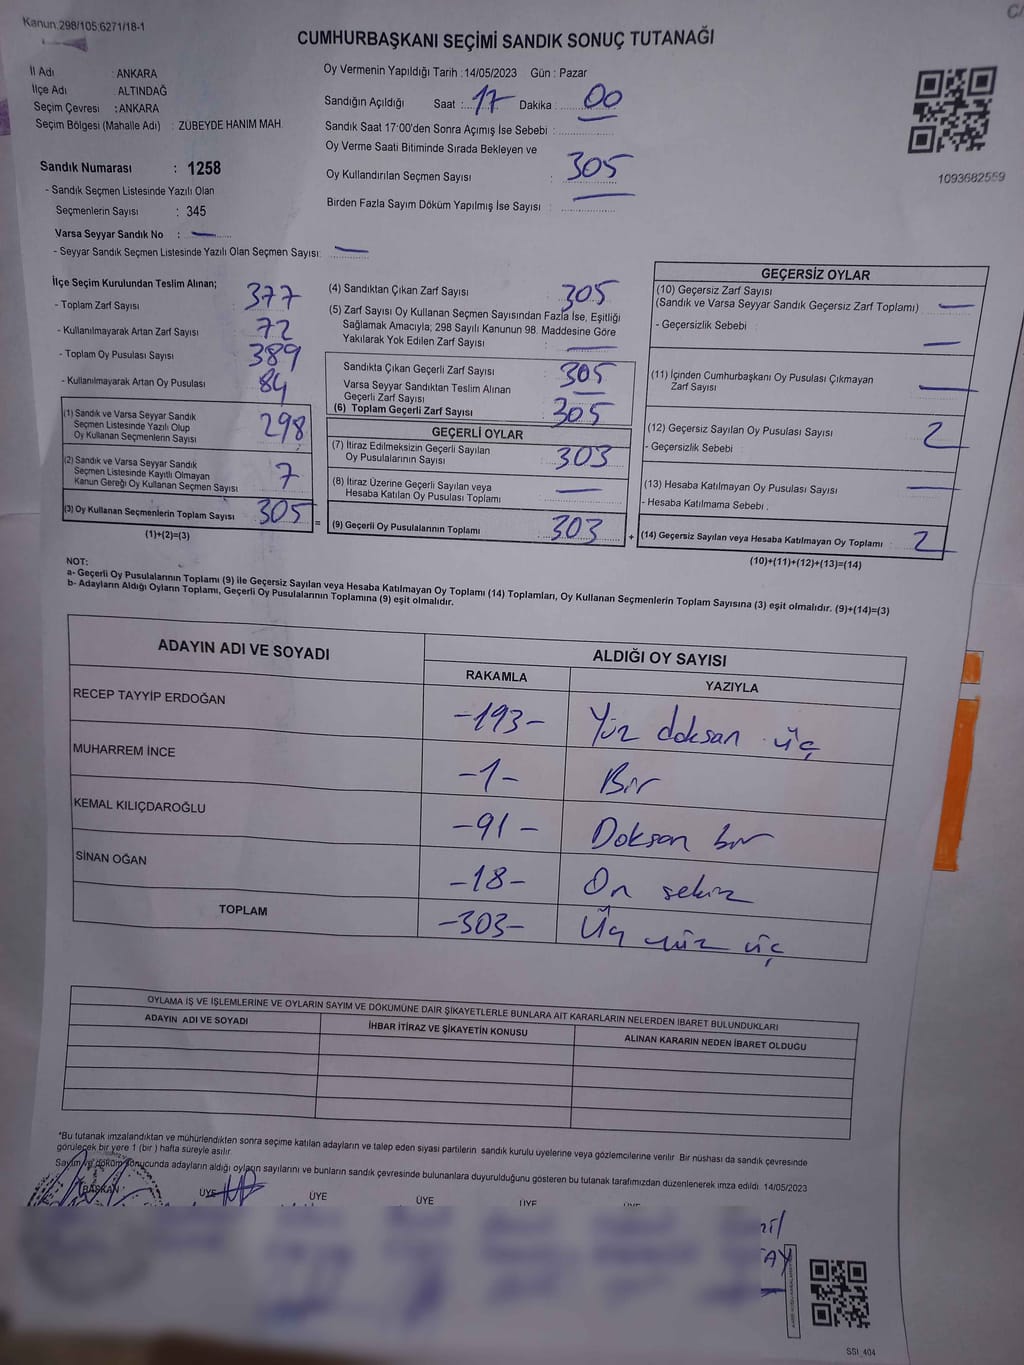 Kanun.298/105;6271/18-1
CUMHURBAŞKANI SEÇİMİ SANDIK SONUÇ TUTANAĞI
İl Adı : ANKARA
İlçe Adı : ALTINDAĞ
Seçim Çevresi : ANKARA
Seçim Bölgesi (Mahalle Adı) : ZÜBEYDE HANIM MAH.
Sandık Numarası : 1258
- Sandık Seçmen Listesinde Yazılı Olan
Seçmenlerin Sayısı : 345
Varsa Seyyar Sandık No :
- Seyyar Sandık Seçmen Listesinde Yazılı Olan Seçmen Sayısı:
Oy Vermenin Yapıldığı Tarih :14/05/2023 Gün : Pazar
Sandığın Açıldığı Saat : 17 Dakika : 00
Sandık Saat 17:00'den Sonra Açımış İse Sebebi :
Oy Verme Saati Bitiminde Sırada Bekleyen ve
Oy Kullandırılan Seçmen Sayısı : 305
Birden Fazla Sayım Döküm Yapılmış İse Sayısı :
1093682559
İlçe Seçim Kurulundan Teslim Alınan;
- Toplam Zarf Sayısı 377
- Kullanılmayarak Artan Zarf Sayısı 72
- Toplam Oy Pusulası Sayısı 389
- Kullanılmayarak Artan Oy Pusulası 84
(1) Sandık ve Varsa Seyyar Sandık
Seçmen Listesinde Yazılı Olup
Oy Kullanan Seçmenlerin Sayısı 298
(2) Sandık ve Varsa Seyyar Sandık
Seçmen Listesinde Kayıtlı Olmayan
Kanun Gereği Oy Kullanan Seçmen Sayısı 7
(3) Oy Kullanan Seçmenlerin Toplam Sayısı 305
(1)+(2)=(3)
=
(4) Sandıktan Çıkan Zarf Sayısı : 305
(5) Zarf Sayısı Oy Kullanan Seçmen Sayısından Fazla İse, Eşitliği
Sağlamak Amacıyla; 298 Sayılı Kanunun 98. Maddesine Göre
Yakılarak Yok Edilen Zarf Sayısı :
Sandıkta Çıkan Geçerli Zarf Sayısı : 305
Varsa Seyyar Sandıktan Teslim Alınan
Geçerli Zarf Sayısı :
(6) Toplam Geçerli Zarf Sayısı : 305
GEÇERLİ OYLAR
(7) İtiraz Edilmeksizin Geçerli Sayılan
Oy Pusulalarının Sayısı : 303
(8) İtiraz Üzerine Geçerli Sayılan veya
Hesaba Katılan Oy Pusulası Toplamı :
(9) Geçerli Oy Pusulalarının Toplamı : 303
+
GEÇERSİZ OYLAR
(10) Geçersiz Zarf Sayısı
(Sandık ve Varsa Seyyar Sandık Geçersiz Zarf Toplamı) :
- Geçersizlik Sebebi :
(11) İçinden Cumhurbaşkanı Oy Pusulası Çıkmayan
Zarf Sayısı :
(12) Geçersiz Sayılan Oy Pusulası Sayısı : 2
- Geçersizlik Sebebi :
(13) Hesaba Katılmayan Oy Pusulası Sayısı :
- Hesaba Katılmama Sebebi .
(14) Geçersiz Sayılan veya Hesaba Katılmayan Oy Toplamı : 2
(10)+(11)+(12)+(13)=(14)
NOT:
a- Geçerli Oy Pusulalarının Toplamı (9) ile Geçersiz Sayılan veya Hesaba Katılmayan Oy Toplamı (14) Toplamları, Oy Kullanan Seçmenlerin Toplam Sayısına (3) eşit olmalıdır. (9)+(14)=(3)
b- Adayların Aldığı Oyların Toplamı, Geçerli Oy Pusulalarının Toplamına (9) eşit olmalıdır.
ADAYIN ADI VE SOYADI
ALDIĞI OY SAYISI
RAKAMLA YAZIYLA
RECEP TAYYİP ERDOĞAN -193- Yüz doksan üç
MUHARREM İNCE -1- Bir
KEMAL KILIÇDAROĞLU -91- Doksan bir
SİNAN OĞAN -18- On sekiz
TOPLAM -303- Üç yüz üç
OYLAMA İŞ VE İŞLEMLERİNE VE OYLARIN SAYIM VE DÖKÜMÜNE DAİR ŞİKAYETLERLE BUNLARA AİT KARARLARIN NELERDEN İBARET BULUNDUKLARI
ADAYIN ADI VE SOYADI İHBAR İTİRAZ VE ŞİKAYETİN KONUSU ALINAN KARARIN NEDEN İBARET OLDUĞU
*Bu tutanak imzalandıktan ve mühürlendikten sonra seçime katılan adayların ve talep eden siyasi partilerin sandık kurulu üyelerine veya gözlemcilerine verilir. Bir nüshası da sandık çevresinde
görülecek bir yere 1 (bir ) hafta süreyle asılır.
Sayım ve döküm sonucunda adayların aldığı oyların sayılarını ve bunların sandık çevresinde bulunanlara duyurulduğunu gösteren bu tutanak tarafımızdan düzenlenerek imza edildi. 14/05/2023
BAŞKAN ÜYE ÜYE ÜYE ÜYE ÜYE
SSI_404